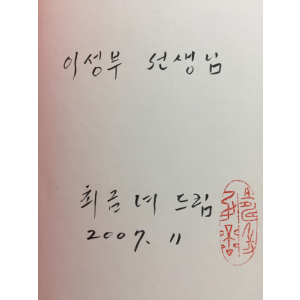 이성부 선생님
최금녀 드림
2007. 11